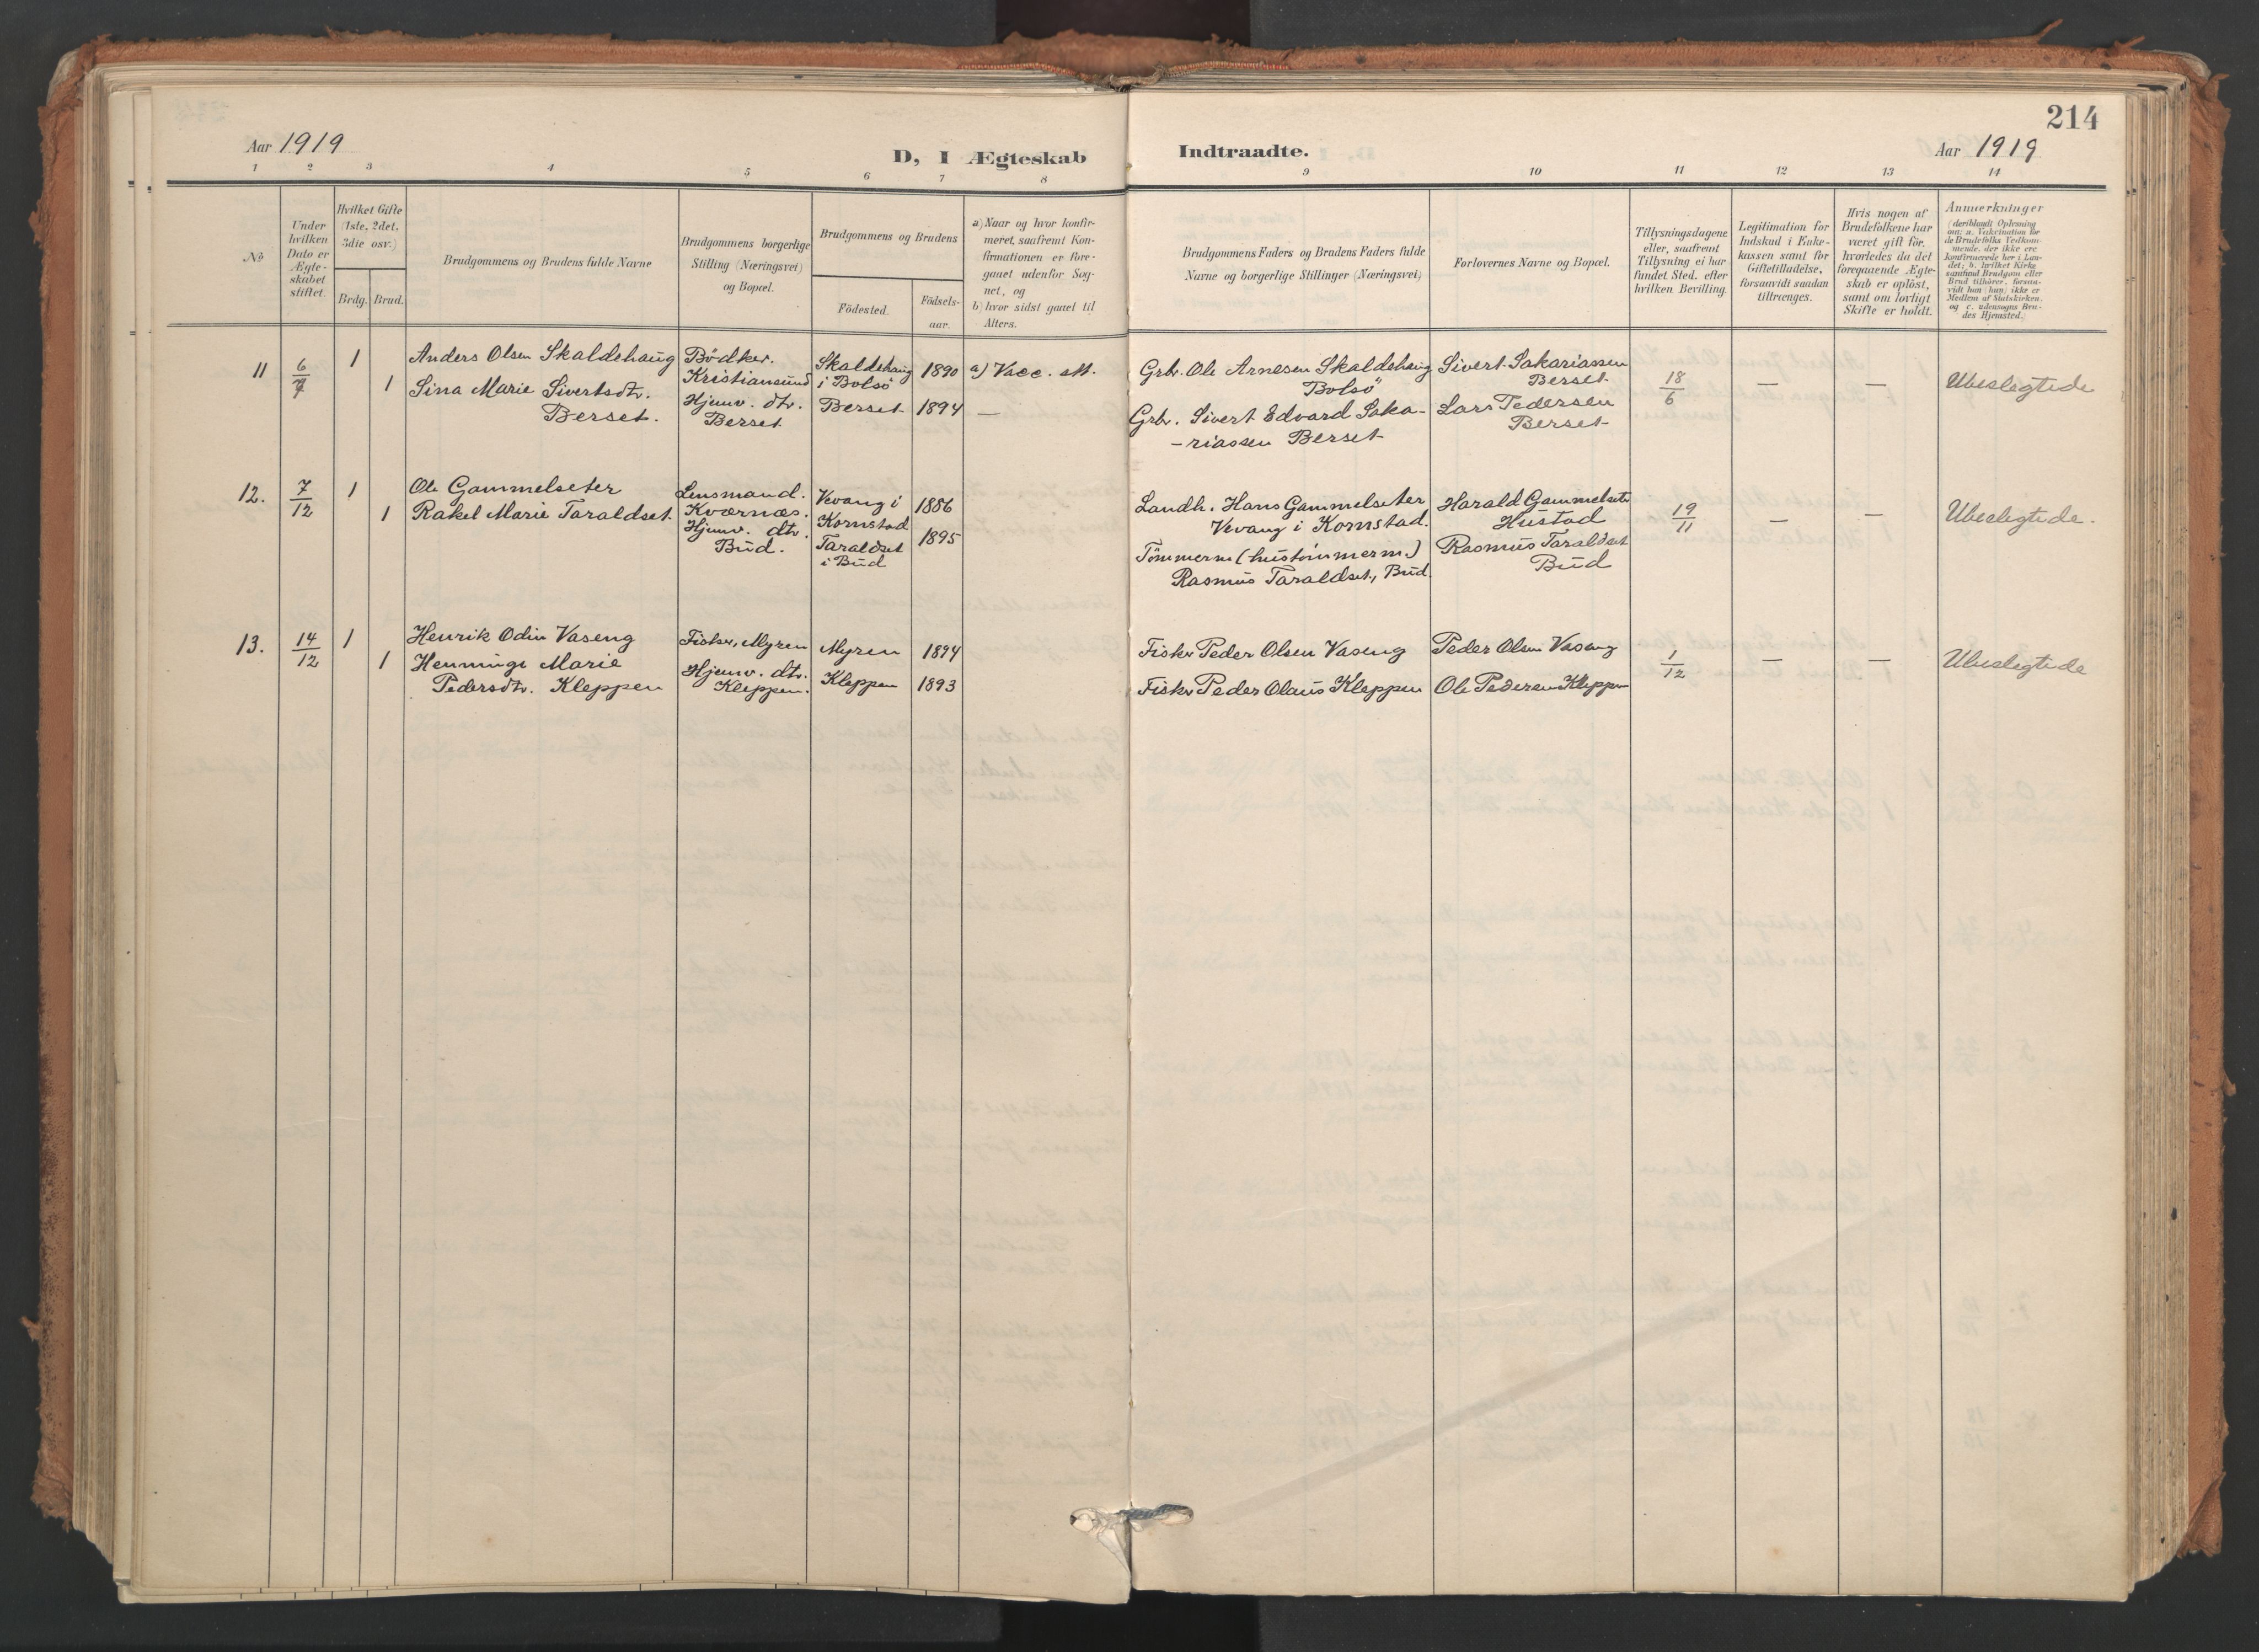 214
Aar 1919
D, I Ægteskab
Indtraadte.
Aar 1919
1 2 3 4 5 6 7 8 9 10 11 12 13 14
No
Under
hvilken
Dato er
Ægte-
skabet
stiftet.
Hvilket Gifte
(1ste, 2det,
3die osv.)
Brdg. Brud.
Brudgommens og Brudens fulde Navne
Brudgommens borgerlige
Stilling (Næringsvei)
og Bopæl.
Brudgommens og Brudens
Födested.
Födsels-
aar.
a) Naar og hvor konfir-
meret, saafremt Kon-
firmationen er fore-
gaaet udenfor Sog-
net, og
b) hvor sidst gaaet til
Alters.
Brudgommens Faders og Brudens Faders fulde
Navne og borgerlige Stillinger (Næringsvei)
Forlovernes Navne og Bopæl.
Tillysningsdagene
eller, saafremt
Tillysning ei har
fundet Sted, efter
hvilken Bevilling.
Legitimation for
Indskud i Enke-
kassen samt for
Giftetilladelse,
forsaavidt saadan
tiltrænges.
Hvis nogen af
Brudefolkene har
været gift för,
hvorledes da det
foregaaende Ægte-
skab er oplöst,
samt om lovligt
Skifte er holdt.
Anmærkninger
(deriblandt Oplysning
om: a. Vakcination for
de Brudefolks Vedkom-
mende, der ikke ere
konfirmerede her i Lan-
det; b. hvilket Kirke
samfund Brudgom eller
Brud tilhörer, forsaa-
vidt han (hun) ikke er
Medlem af Statskirken,
og c. udensogns Bru-
des Hjemsted.)
11
6
7
1
1
Anders Olsen Skaldehaug
Sina Marie Sivertsdtr.
Berset.
Bödker.
Kristiansund
Hjemv. dtr.
Berset
Skaldehaug
i Bolsö
Berset
1890
1894
a) Vacc. att.
—
Grbr. Ole Arnesen Skaldehaug
Bolsö
Grbr. Sivert Edvard Saka-
-riassen Berset
Sivert Sakariassen
Berset
Lars Pedersen
Berset
18
6
—
—
Ubeslegtede
12.
7
12
1
1
Ole Gammelseter
Rakel Marie Taraldset.
Lensmand.
Kværnæs.
Hjemv. dtr.
Bud.
Vevang i
Kornstad
Taraldset
i Bud
1886
1895
Landh. Hans Gammelseter
Vevang i Kornstad.
Tömmerm (hustömmerm.)
Rasmus Taraldset, Bud.
Harald Gammelseter
Hustad
Rasmus Taraldset
Bud
19
11
—
—
Ubeslegtede.
13.
14
12
1
1
Henrik Odin Vaseng
Henninge Marie
Pedersdtr. Kleppen
Fisker, Myren
Hjemv. dtr.
Kleppen.
Myren
Kleppen
1894
1893
Fisker Peder Olsen Vaseng
Fisker Peder Olaus Kleppen
Peder Olsen Vaseng
Ole Pedersen Kleppen
1
12
—
—
Ubeslegtede